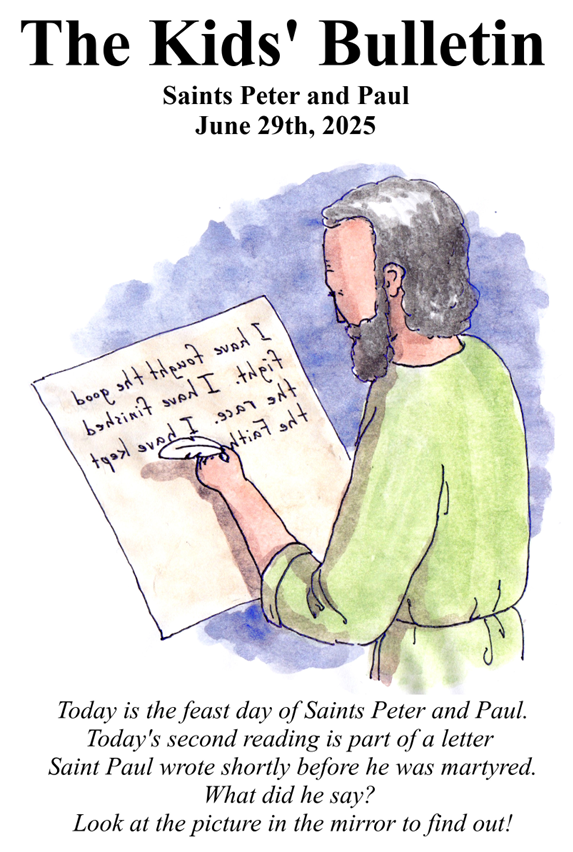 The Kids' Bulletin
Saints Peter and Paul
June 29th, 2025
I have fought the good
fight. I have finished
the race. I have kept
the Faith.
Today is the feast day of Saints Peter and Paul.
Today's second reading is part of a letter
Saint Paul wrote shortly before he was martyred.
What did he say?
Look at the picture in the mirror to find out!